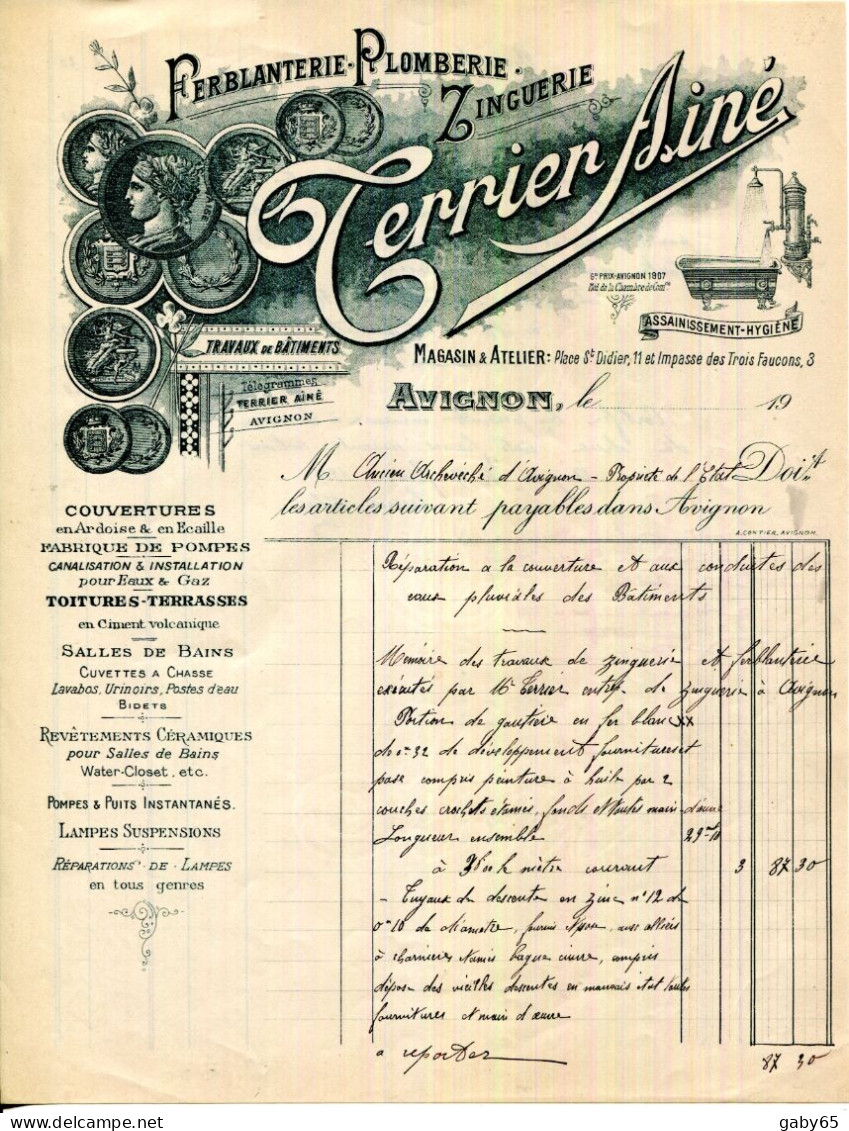 FERBLANTERIE-PLOMBERIE-
ZINGUERIE
Terrier Ainé
Gd PRIX-AVIGNON 1907
Méd. de la Chambre de Comce
ASSAINISSEMENT-HYGIÈNE
TRAVAUX DE BÂTIMENTS
MAGASIN & ATELIER: Place St Didier, 11 et Impasse des Trois Faucons, 3
Télégrammes
TERRIER AÎNÉ
AVIGNON
AVIGNON, le 19
M Ancien Archevêché d'Avignon - Propriété de l'Etat Doit
les articles suivant payables dans Avignon
A. CONTIER, AVIGNON
COUVERTURES
en Ardoise & en Ecaille
FABRIQUE DE POMPES
CANALISATION & INSTALLATION
pour Eaux & Gaz
TOITURES-TERRASSES
en Ciment volcanique
SALLES DE BAINS
CUVETTES A CHASSE
Lavabos, Urinoirs, Postes d'eau
BIDETS
REVÊTEMENTS CÉRAMIQUES
pour Salles de Bains
Water-Closet, etc.
POMPES & PUITS INSTANTANÉS.
LAMPES SUSPENSIONS
RÉPARATIONS DE LAMPES
en tous genres
Réparation a la couverture et aux conduites des
eaux pluviales des Bâtiments
Mémoire des travaux de zinguerie et ferblanterie
exécutés par Mr Terrier entrep. de zinguerie à Avignon
Portion de gouttière en fer blanc xx
de 0m 32 de développement fournitures et
pose compris peinture à huile par 2
couches crochets étamés, fonds et toutes main-d'œuvre
Longueur ensemble 29m10
à le mètre courant 3 87 30
- Tuyaux de descente en zinc n° 12 de
0m 10 de diamètre, fournis et pose, avec colliers
à charnières étamés bague cuivre, compris
dépose des vieilles descentes en mauvais état toutes
fournitures et main d'œuvre
a reporter 87 30
gaby65